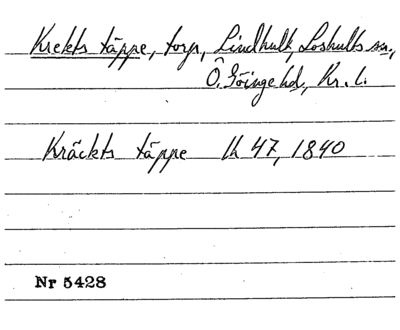 Krekts täppe, torp, Lindhult, Loshults sn,
Ö. Göinge hd, Kr. l.
Kräckts täppe lh 47, 1840
Nr 5428